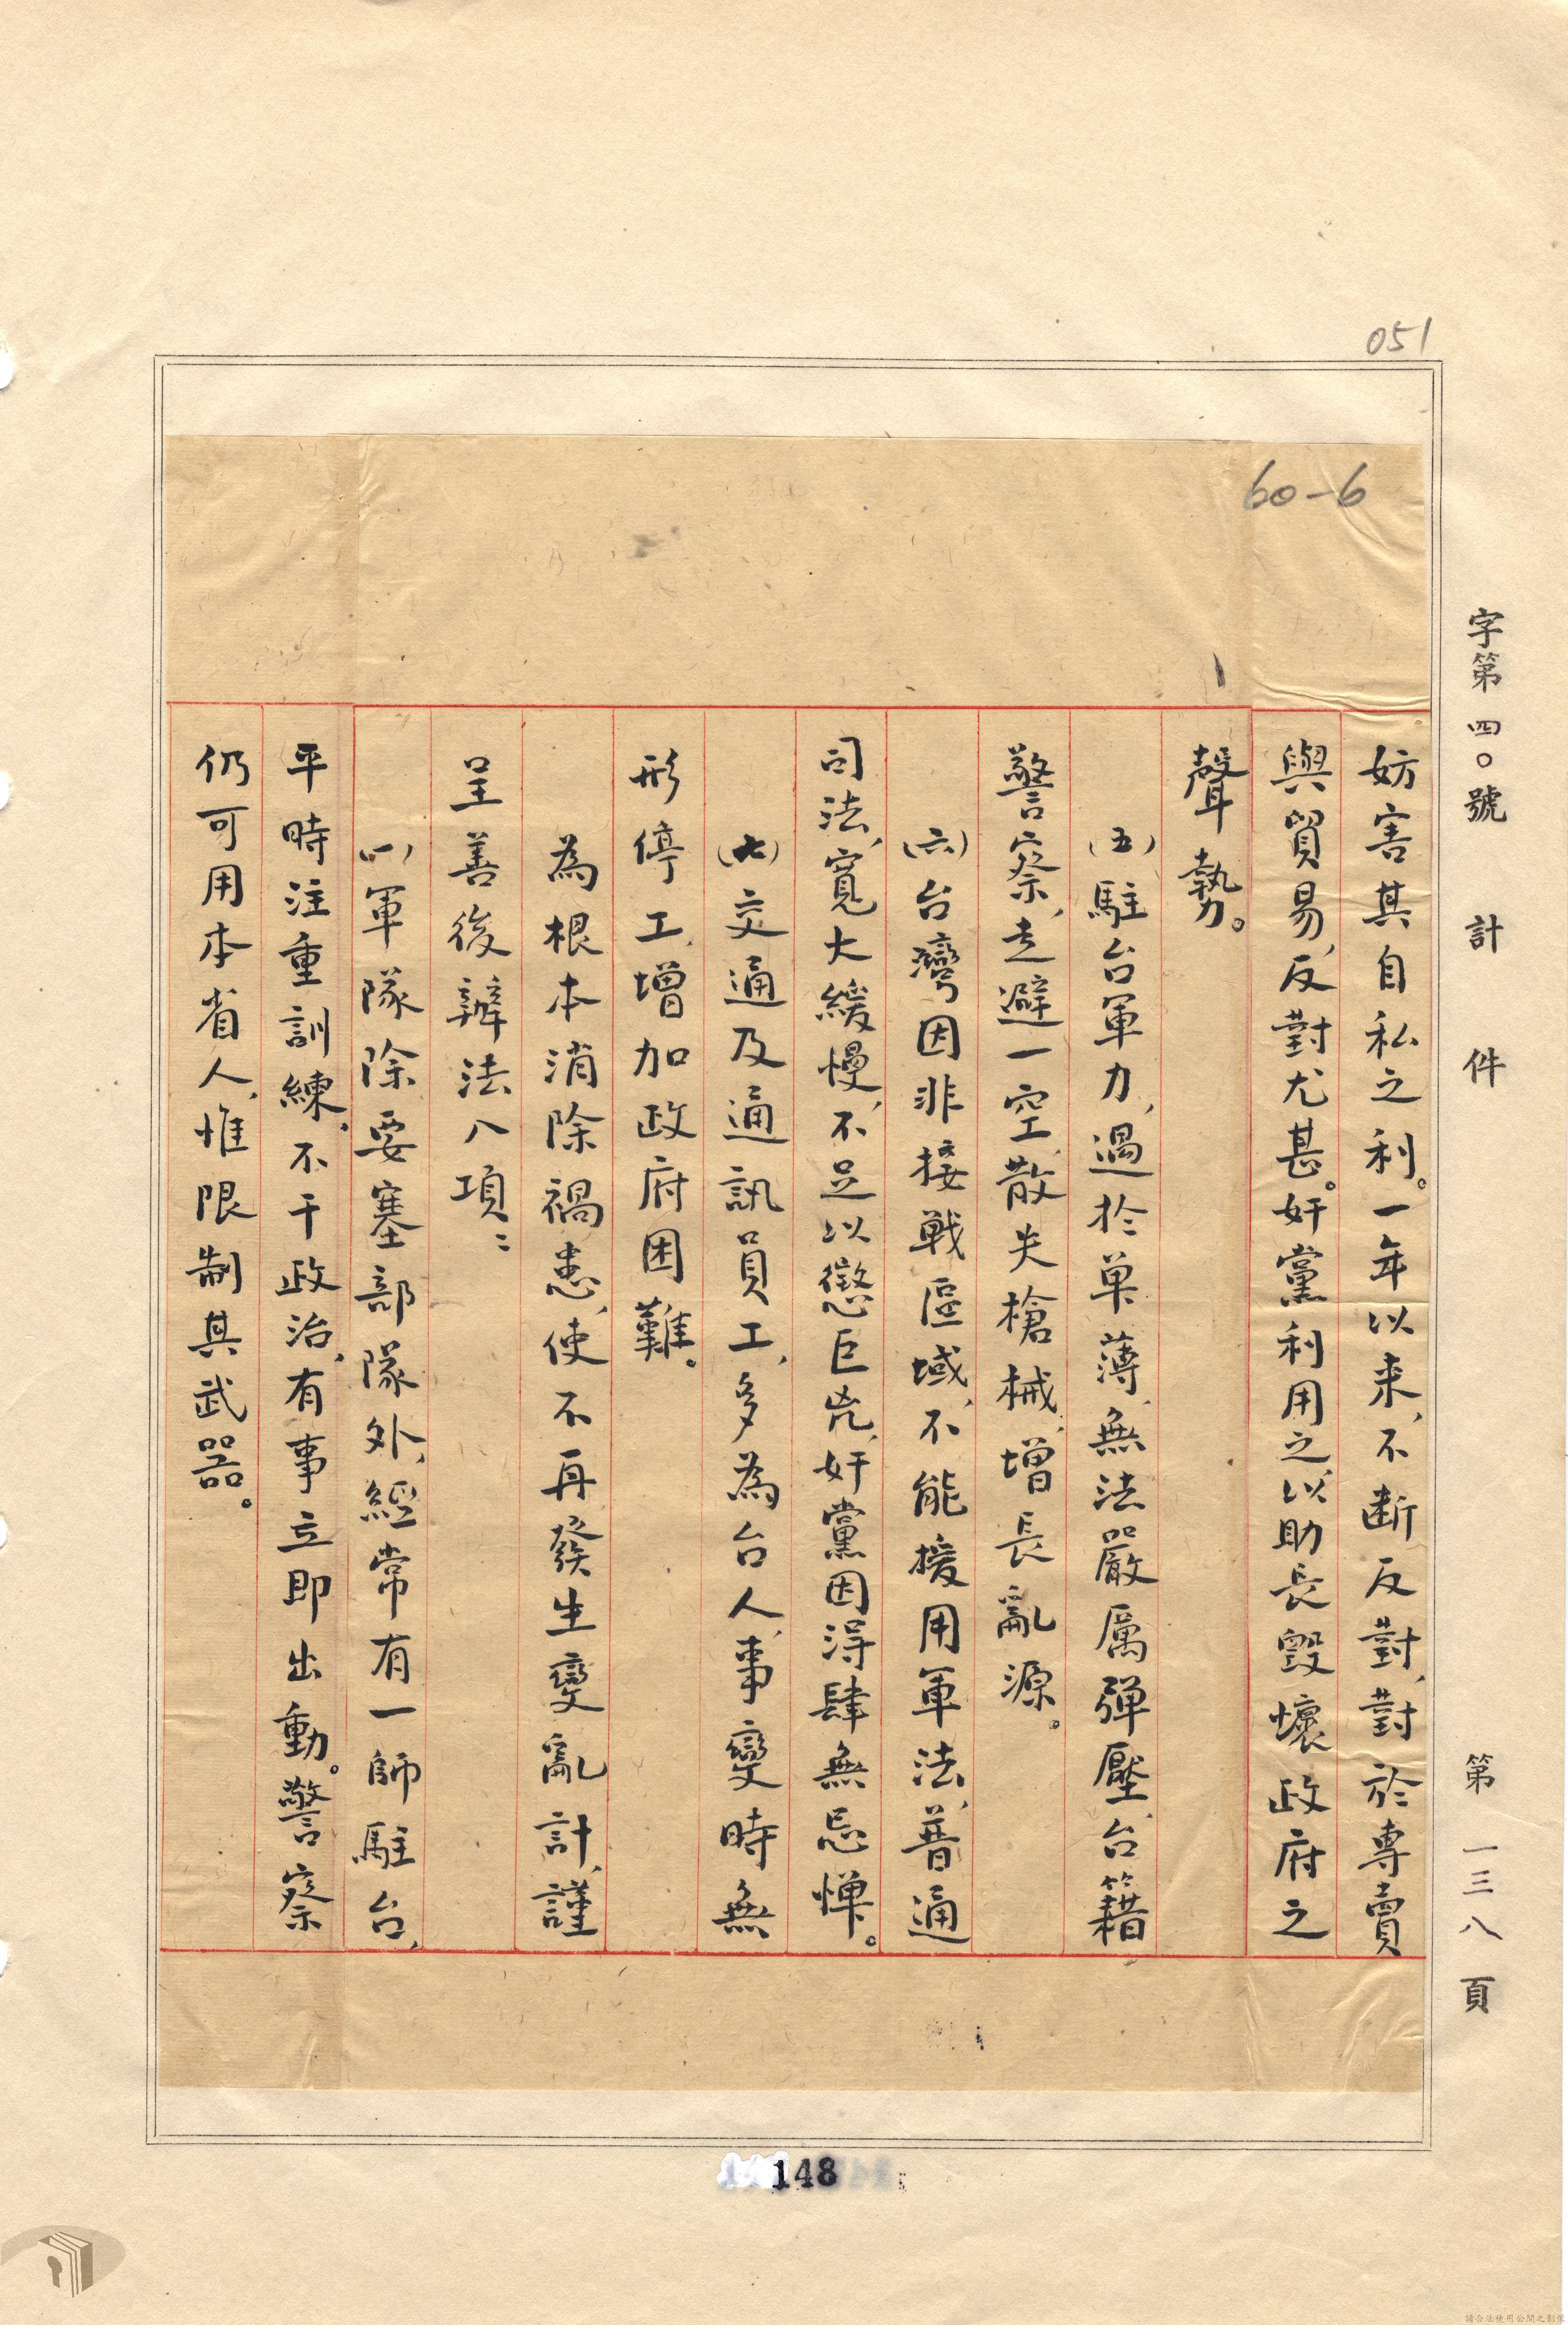 051
60-6
字第四〇號計件 第一三八頁
妨害其自私之利。一年以来，不断反對，對於專賣
與貿易，反對尤甚。奸黨利用之，以助長毀壞政府之
聲勢。
（五）駐台軍力，過於单薄，無法嚴厲弹壓，台籍
警察，走避一空，散失槍械，增長亂源。
（六）台灣因非接戰區域，不能援用軍法，普通
司法，寬大緩慢，不足以懲巨兇，奸黨因得肆無忌惮。
（七）交通及通訊員工，多為台人，事變時無
形停工，增加政府困難。
為根本消除禍患，使不再發生變亂計，謹
呈善後辦法八項：
（一）軍隊除要塞部隊外，經常有一師駐台，
平時注重訓練，不干政治，有事立即出動。警察
仍可用本省人，惟限制其武器。
148
請合法使用公開之影像